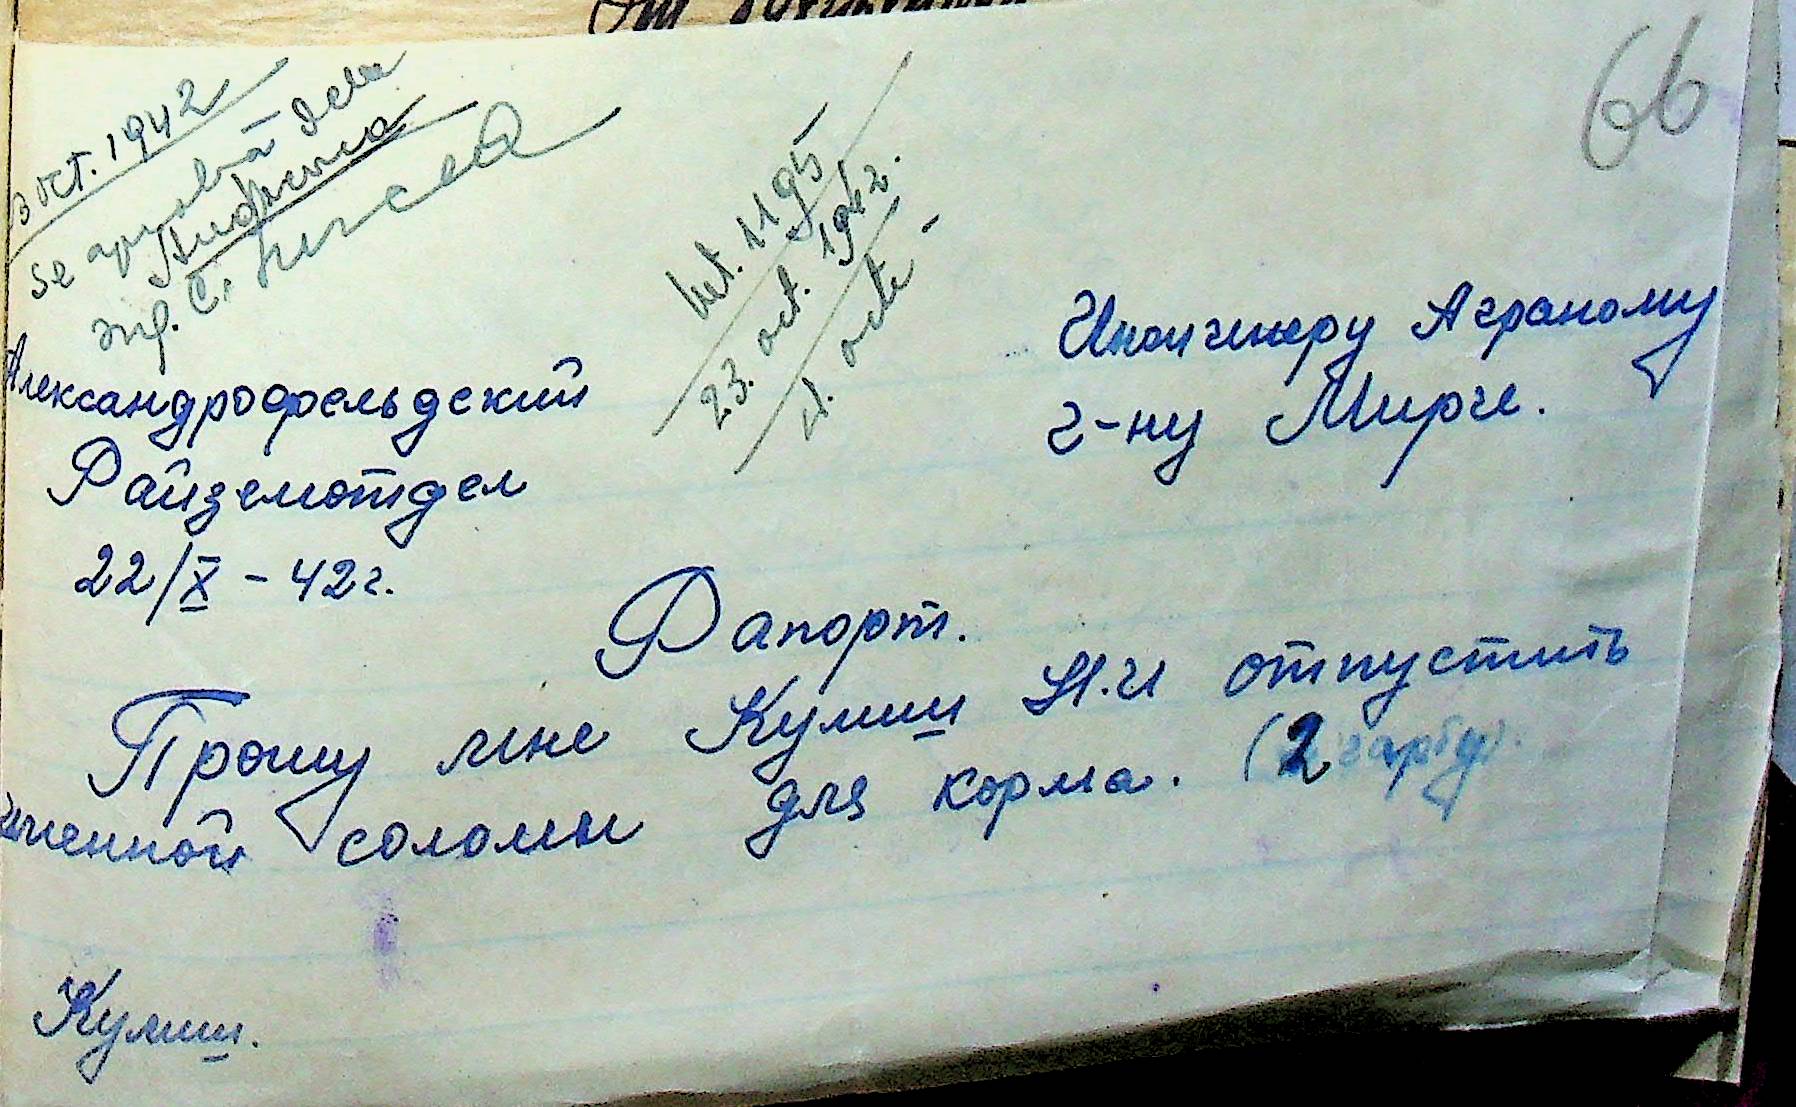 66
3 oct. 1942
Se aprobă dela
ing. C. Mircea
1195
23. oct. 1942.
Александрофельдский
Райземотдел
22/X - 42г.
Инженеру Аграному
г-ну Мирче.
Рапорт.
Прошу мне Кулиш Н.И отпустить
соломы для корма. (2 гарбы).
Кулиш.